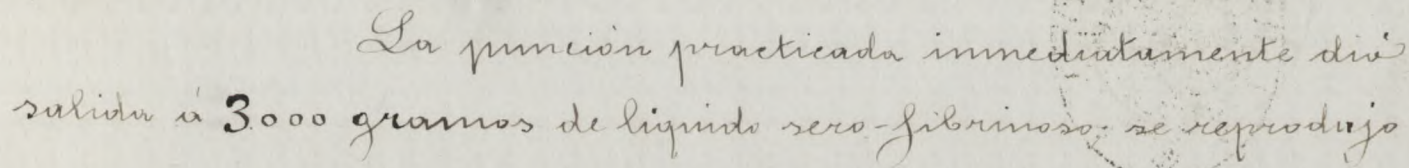 La punción practicada inmediatamente dió
salida á 3000 gramos de liquido sero-fibrinoso. se reprodujo